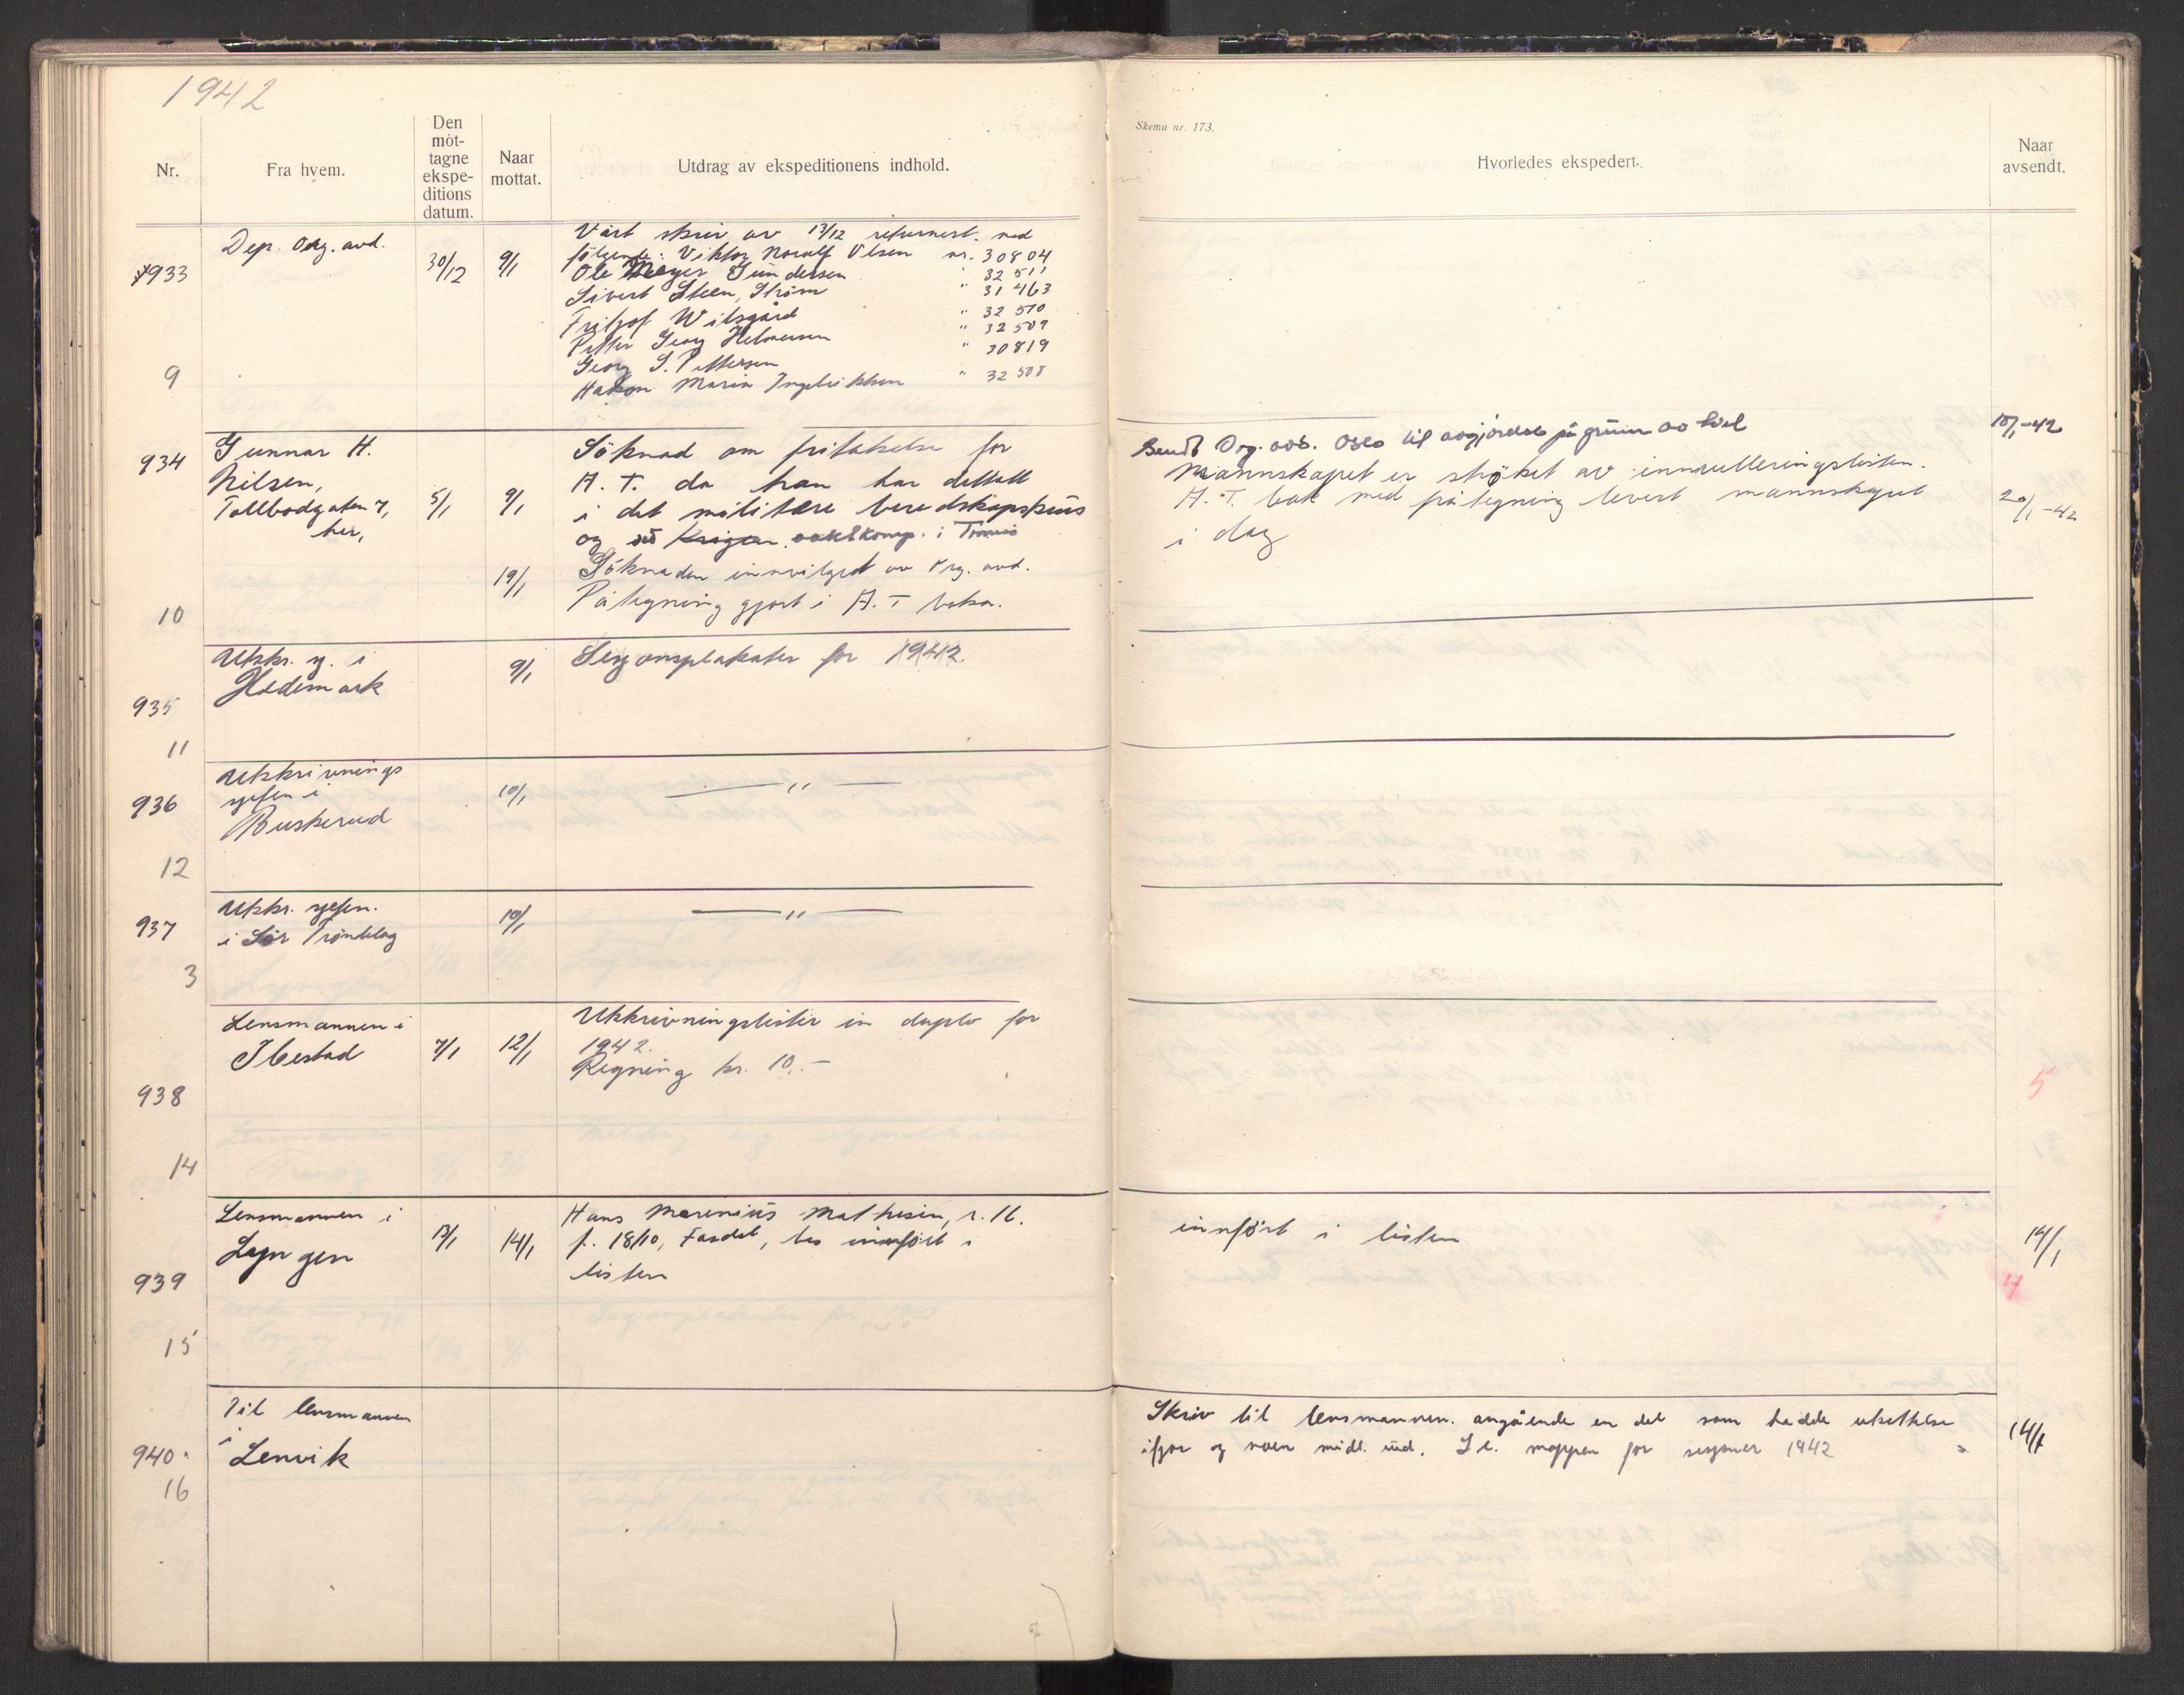 1942
Nr.
Fra hvem.
Den
mot-
tagne
ekspe-
ditions
datum.
Naar
mottat.
Utdrag av ekspeditionens indhold.
Skema nr. 173.
Hvorledes ekspedert.
Naar
avsendt.
933
9
Dep. Org. avd.
30/12
9/1
Vårt skriv av 13/12 returnert. med
følgende: Viktor Noralf Olsen nr. 30804
Ole Meyer Gundersen " 32511
Sivert Steen, Strøm " 31463
Fritjof Wilsgård " 32510
Petter Georg Helmersen " 32509
Georg S. Pettersen " 30819
Håkon Marin Ingebriktsen " 32508
934
10
Gunnar H.
Nilsen,
Tollbodgaten 7,
her,
5/1
9/1
Söknad om fritakelse for
A. T. da han har deltatt
i det militære beredskapskurs
og ved Krigsr. vaktkomp. i Tromsö
19/1
Söknaden innvilget av Org. avd.
Påtegning gjort i A. T boka.
Sendt Org. avd. Oslo til avgjörelse på grunn av tvil
10/1-42
Mannskapet er strøket av innrulleringslisten.
A. T. bok med påtegning levert mannskapet
i dag
20/1-42
935
11
Utskr. sj. i
Hedemark
9/1
Sesjonsplakater for 1942.
936
12
Utskrivnings
sjefen i
Buskerud
10/1
— " —
937
3
Utskr. sjefen.
i Sör Trøndelag
10/1
— " —
938
14
Lensmannen i
Ibestad
7/1
12/1
Utskrivningslister in duplo for
1942.
Regning kr. 10.-
5
939
15
Lensmannen i
Lyngen
13/1
14/1
Hans Marenius Mathisen, r. 16.
f. 18/10, , bes innfört i
listen
innfört i listen
14/1
4
940.
16
Til lensmannen
i
Lenvik
Skriv til lensmannen. angående en del som hadde utsettelse
ifjor og noen midl. ud. Se mappen for sesjoner 1942
14/1